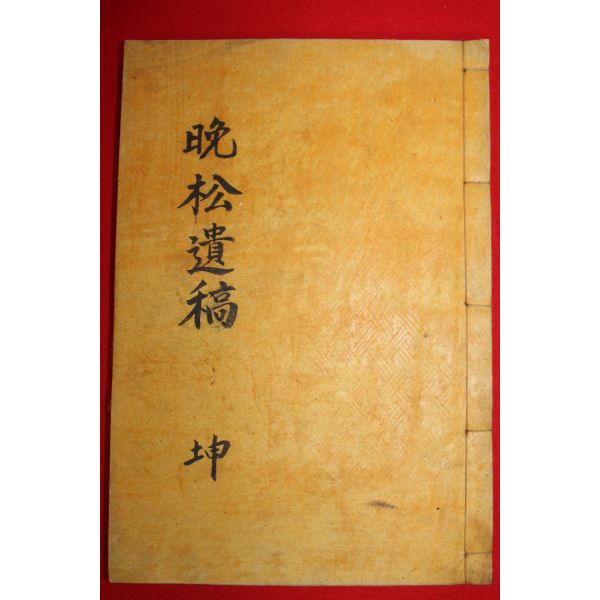 晩松遺稿 坤